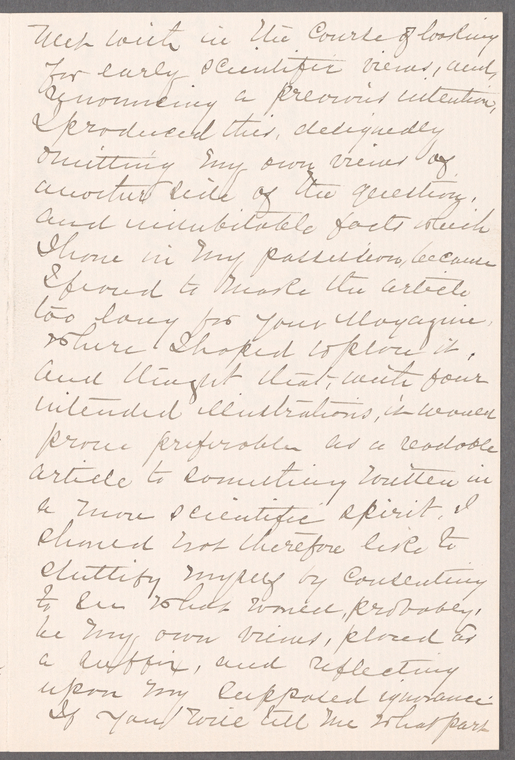 met with in the course of looking
for early scientific views, and,
renouncing a previous intention,
I produced this, designedly
omitting my own views of
another side of the question,
and indubitable facts which
I have in my possession, because
I feared to make the article
too long for your Magazine,
where I hoped to place it,
and thought that, with four
intended illustrations, it would
prove preferable as a readable
article to something written in
a more scientific spirit. I
should not therefore like to
stultify myself by consenting
to see what would, probably,
be my own views, placed as
a suffix, and reflecting
upon my supposed ignorance
If you will tell me what part